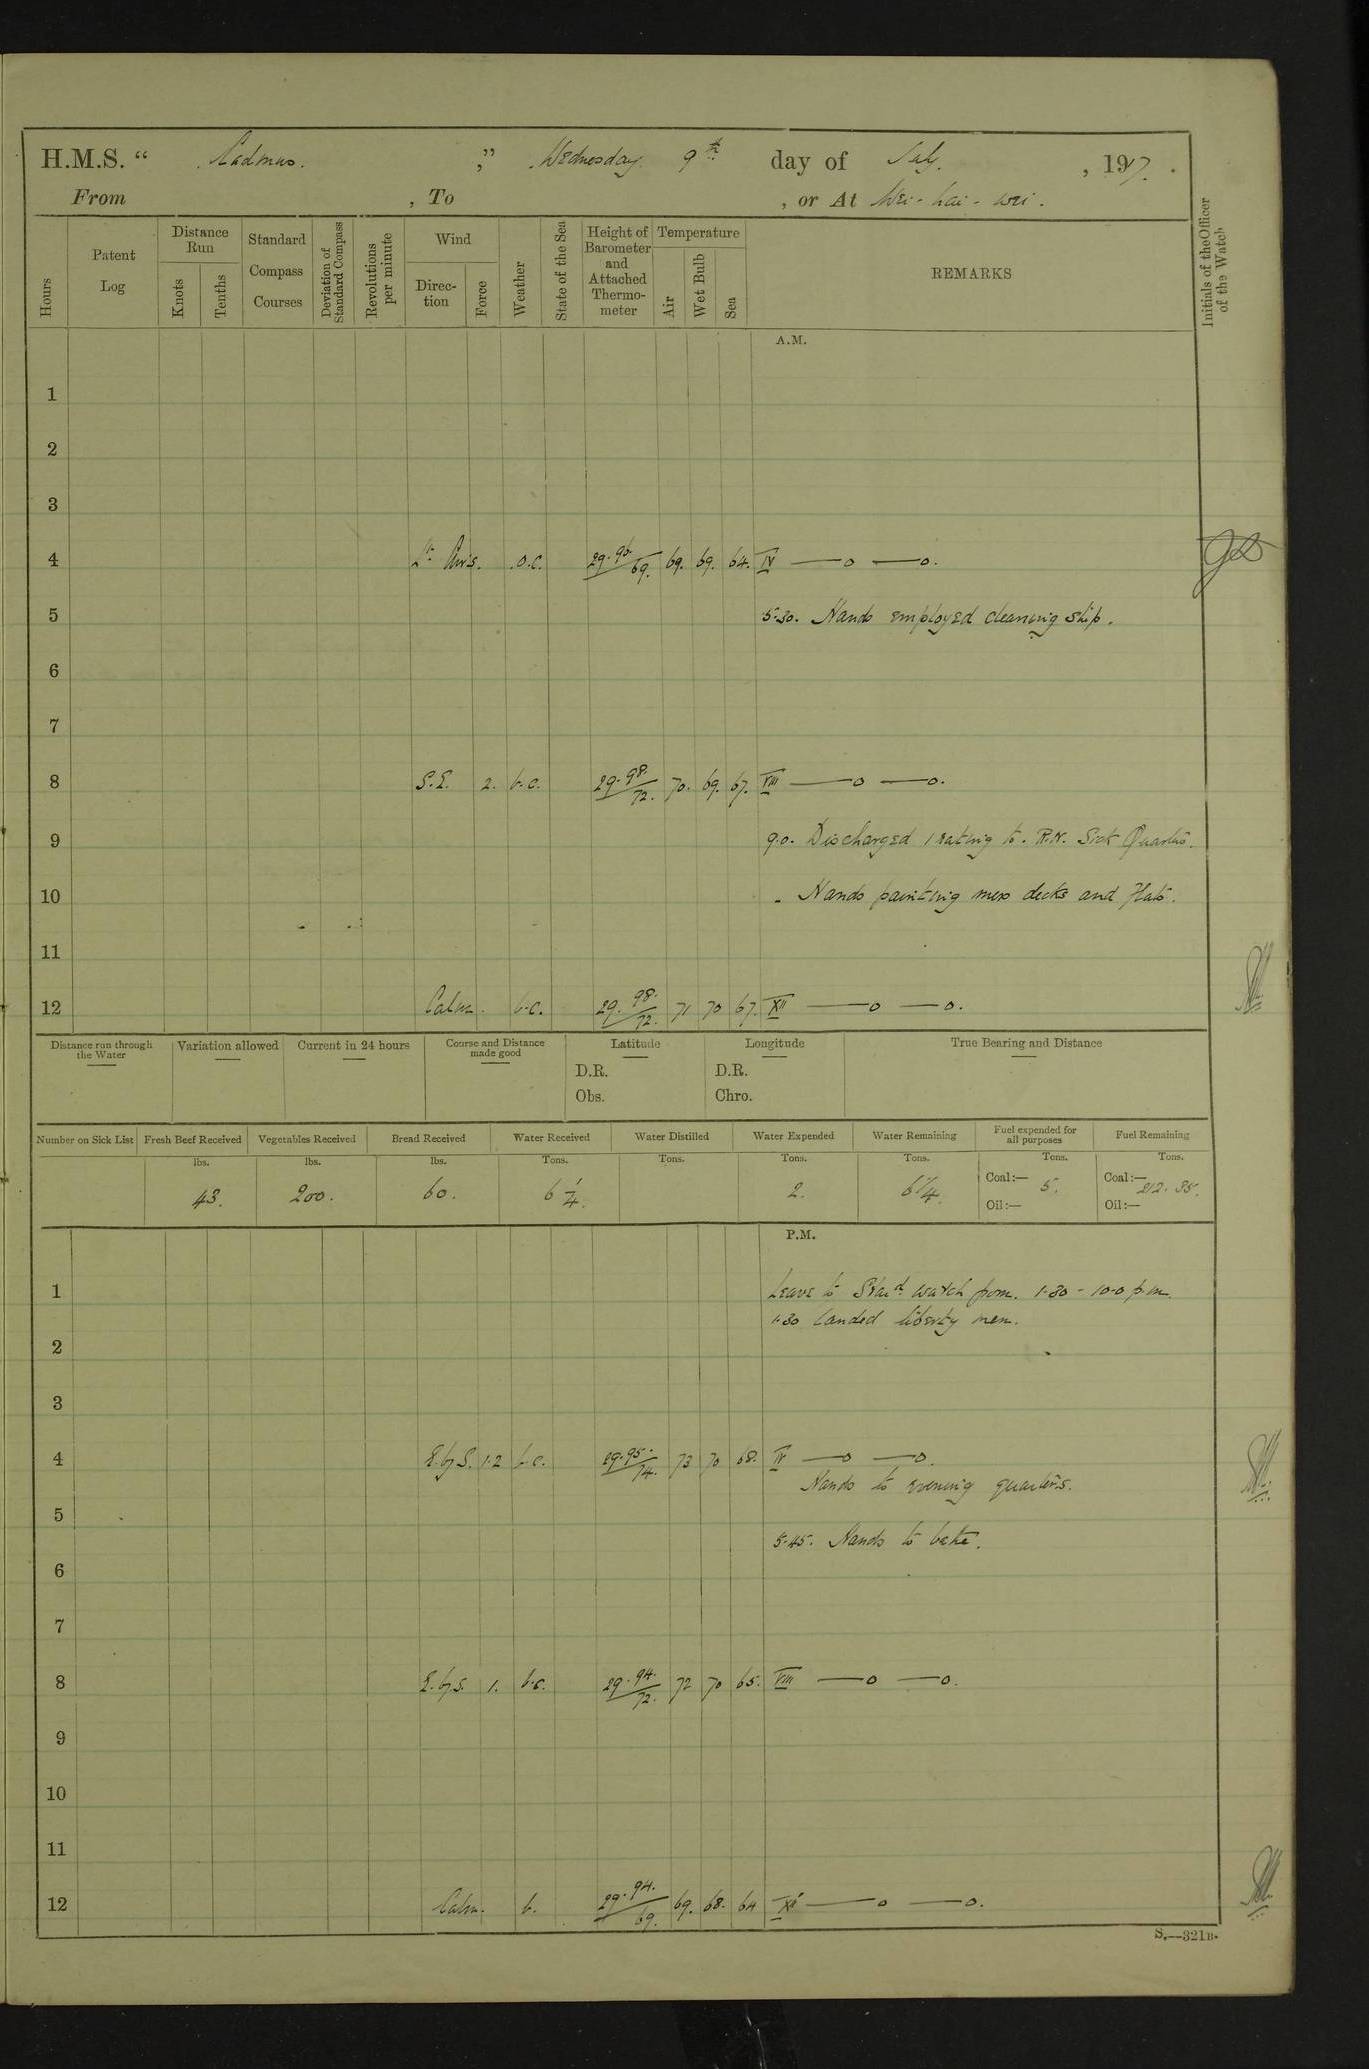 H.M.S. “ Cadmus. ,” Wednesday 9th day of July, 1917.
From , To , or At Wei-hai-wei.
Hours
Patent Log
Distance Run
Knots
Tenths
Standard Compass Courses
Deviation of Standard Compass
Revolutions per minute
Wind
Direc-tion
Force
Weather
State of the Sea
Height of Barometer and Attached Thermo-meter
Temperature
Air
Wet Bulb
Sea
REMARKS
Initials of the Officer of the Watch
A.M.
1
2
3
4 Lt. Airs. o.c. 29.96/69. 69. 69. 64. IV —o —o.
5 5.30. Hands employed cleaning ship.
6
7
8 S.E. 2. b.c. 29.98/72. 70. 69. 67. VIII —o —o.
9 9.0. Discharged 1 rating to R.N. Sick Quarters.
10 " Hands painting mess decks and flats.
11
12 Calm. b.c. 29.98/72. 71 70 67. XII —o —o.
Distance run through the Water
Variation allowed
Current in 24 hours
Course and Distance made good
Latitude
D.R.
Obs.
Longitude
D.R.
Chro.
True Bearing and Distance
Number on Sick List
Fresh Beef Received
Vegetables Received
Bread Received
Water Received
Water Distilled
Water Expended
Water Remaining
Fuel expended for all purposes
Fuel Remaining
lbs. lbs. lbs. Tons. Tons. Tons. Tons. Tons. Tons.
43. 200. 60. 6 1/4. 2. 6 1/4. Coal:— 5. Coal:— 212.35.
Oil:— Oil:—
P.M.
1 Leave to Stard watch from 1.30 - 10.0 p.m.
1.30 Landed liberty men.
2
3
4 E.by S. 1.2 b.c. 29.95/74. 73 70 68. IV —o —o.
Hands to evening quarters.
5
5.45. Hands to bathe.
6
7
8 E.by S. 1. b.c. 29.94/72. 72 70 65. VIII —o —o.
9
10
11
12 Calm. b. 29.94/69. 69. 68. 64 XII —o —o.
S.—321B.